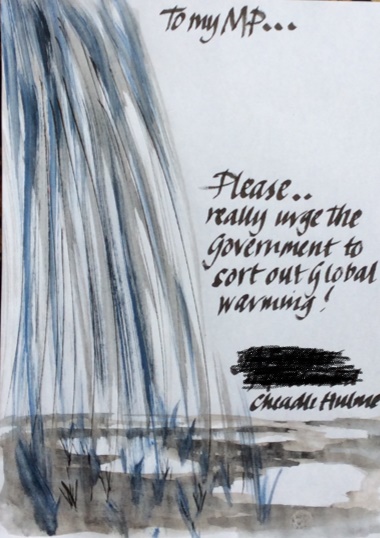 To my MP...
Please..
really urge the
government to
sort out Global
warming!
Cheadle Hulme